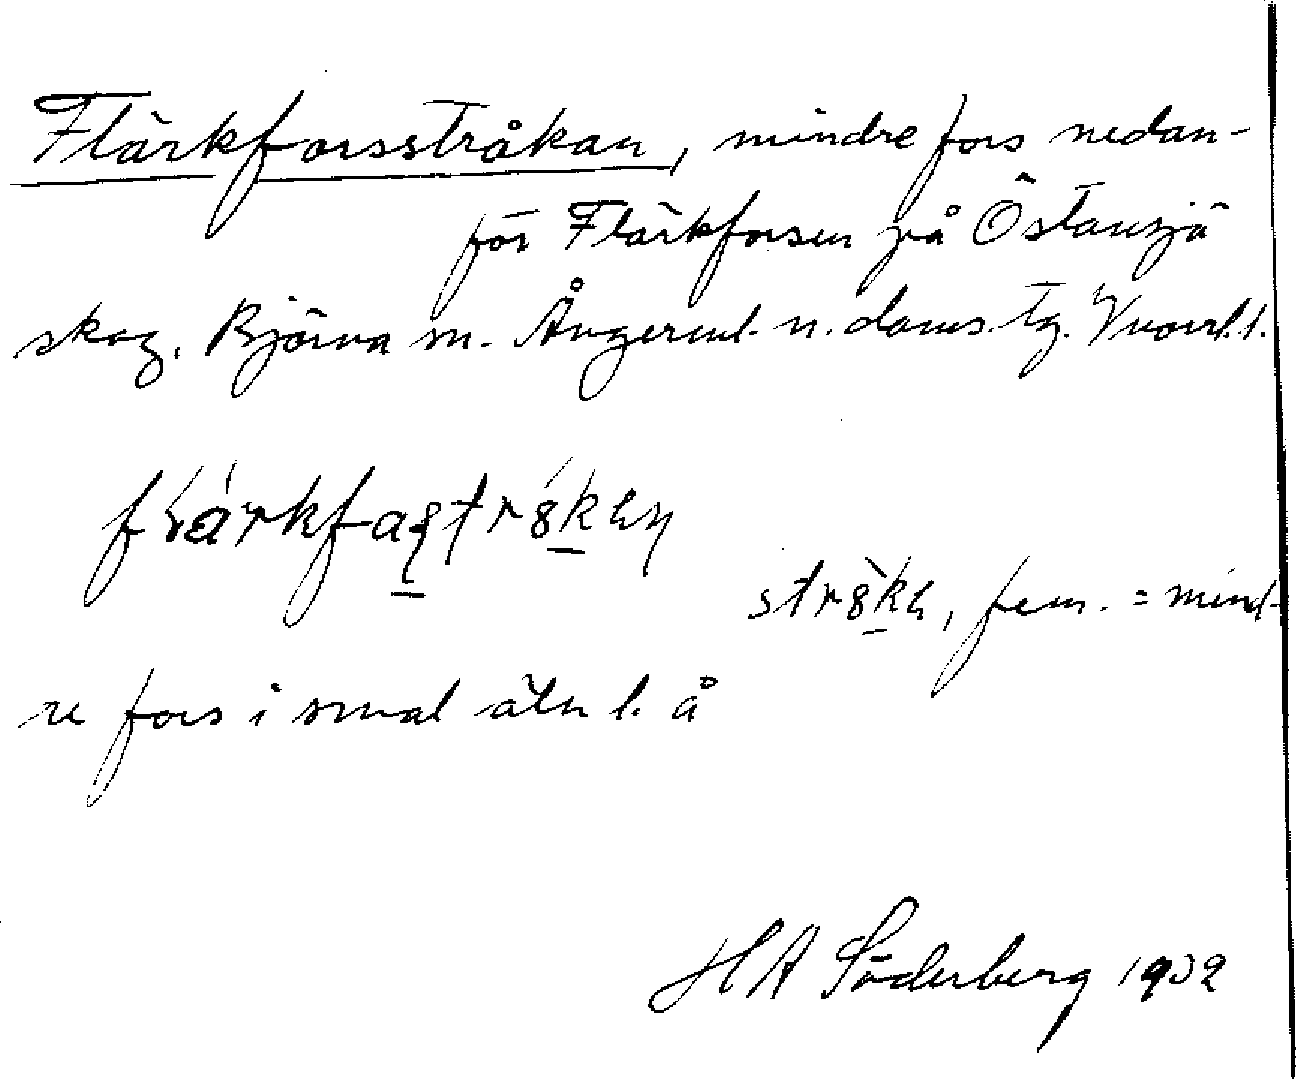 Flärkforsstråkan, mindre fors nedan-
för Flärkforsen på Östansjö
skog, Björna sn. Ångerml. n. doms.tg. Vnorrl. l.
stråka, fem. = mind-
re fors i smal älv l. å
HA Söderberg 1932